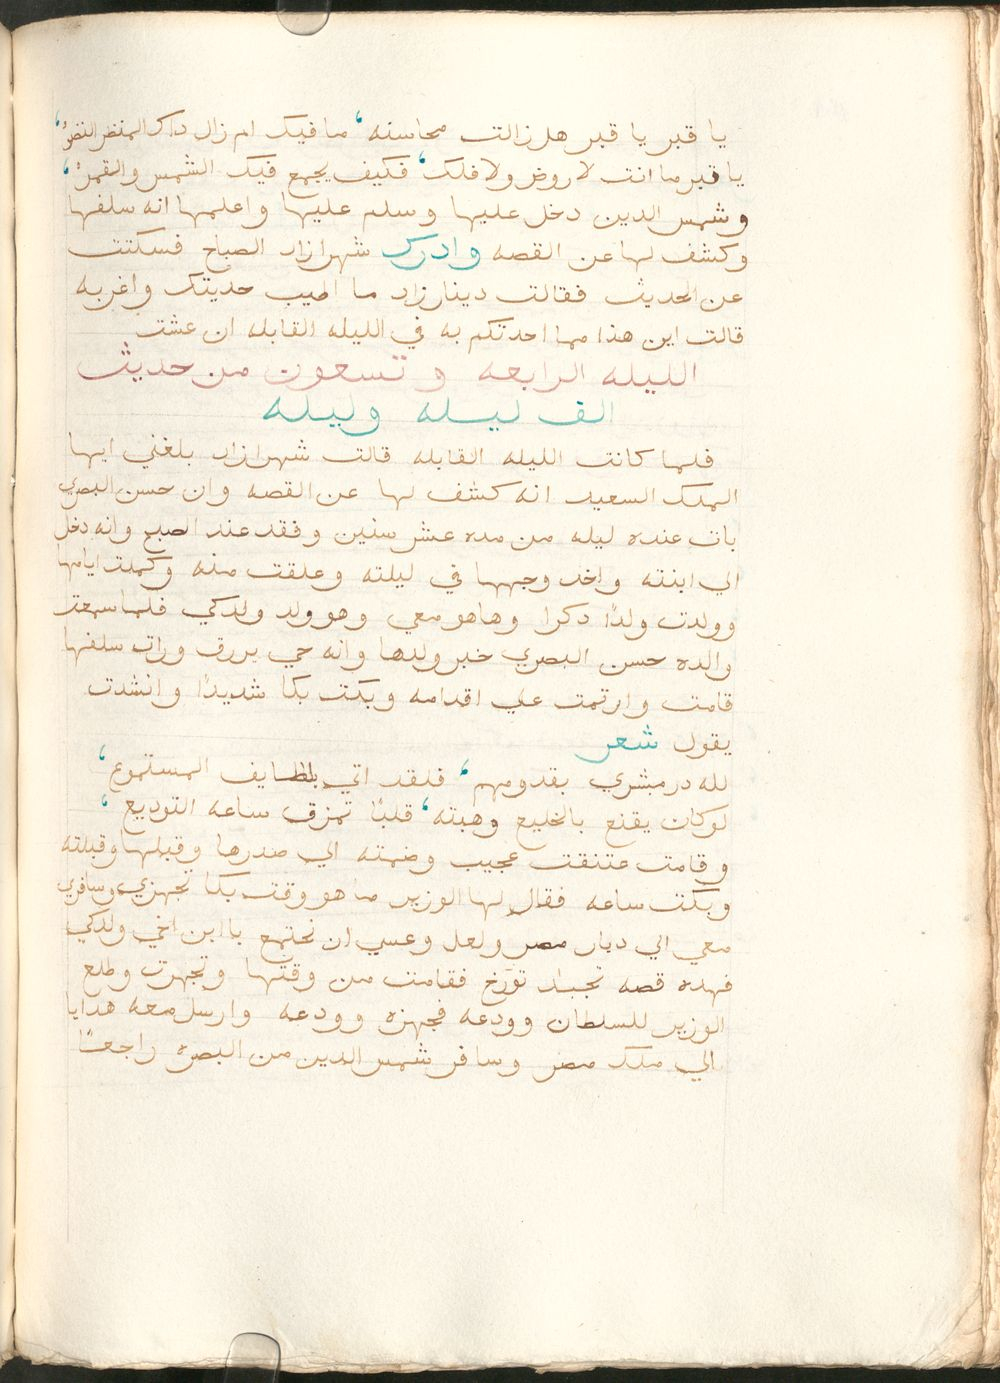 يا قبر يا قبر هل زالت محاسنه ‘ ما فيك ام زال داك المنضر النضرُ ‘
يا قبر ما انت لا روض ولا فلك ‘ فكيف يجمع فيك الشمس والقمرُ ‘
وشمس الدين دخل عليها وسلم عليها واعلمها انه سلفها
وكشف لها عن القصه وادرك شهرازاد الصباح فسكتت
عن الحديث فقالت دينارزاد ما اطيب حديتك واغربه
قالت اين هذا مما احدتكم به في الليله القابله ان عشت
الليله الرابعه وتسعون من حديث
الف ليله وليله
فلما كانت الليله القابله قالت شهرازاد بلغني ايها
الملك السعيد انه كشف لها عن القصه وان حسن البصري
بات عنده ليله من مده عشر سنين وفقد عند الصبح وانه دخل
الي ابنته واخد وجهها في ليلته وعلقت منه وكملت ايامها
وولدت ولدًا دكرا وهاهو معي وهو ولد ولدكي فلما سمعت
والده حسن البصري خبر ولدها وانه حي يررق ورات سلفها
قامت وارتمت علي اقدامه وبكت بكا شديدًا وانشدت
يقول شعر
لله در مبشري بقدومهم ‘ فلقد اتي بلطايف المستموع ‘
لوكان يقنع بالخليع وهبته ‘ قلبًا تمزق ساعه التوديع ‘
وقامت عتنقت عجيب وضمته الي صدرها وقبلها وقبلته
وبكت ساعه فقال لها الوزير ما هو وقت بكا تجهزي وسافري
معي الي ديار مصر ولعل وعسي ان نجتمع با ابن اخي ولدكي
فهده قصه تجب تورخ فقامت من وقتها وتجهزت وطلع
الوزير للسلطان وودعه فجهزه وودعه وارسل معه هدايا
الي ملك مصر وسافر شمس الدين من البصره راجعًا